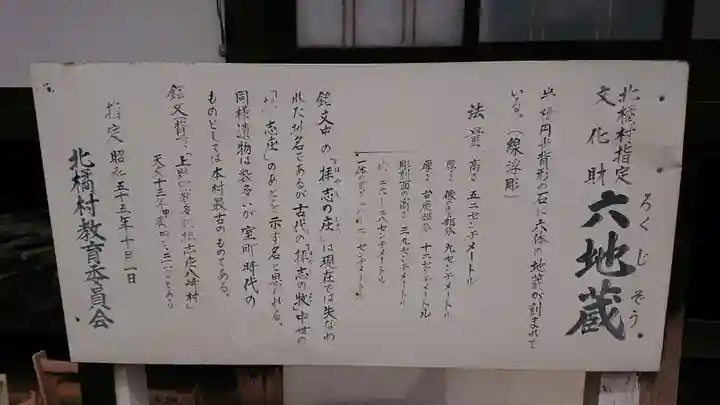 北橘村指定
文化財
六地蔵
ろくじぞう
円光背形の石に六体の地蔵が刻まれて
いる。(線浮彫)
法量 高さ 五二センチメートル
厚さ 像のある部分 九センチメートル
厚さ 台座部分 十六センチメートル
彫刻面の高さ 三九センチメートル
二六~二八センチメートル
一体の センチメートル
銘文中の「拝志の庄」は現在では失なわ
れた地名であるが古代の「拝志の牧」中世の
「拝志庄」のあとを示す名と思われる。
同様遺物は数多いが室町時代の
ものとしては本村最古のものである。
銘文
八崎村」
天文十三年甲辰四
指定 昭和五十五年十月一日
北橘村教育委員会